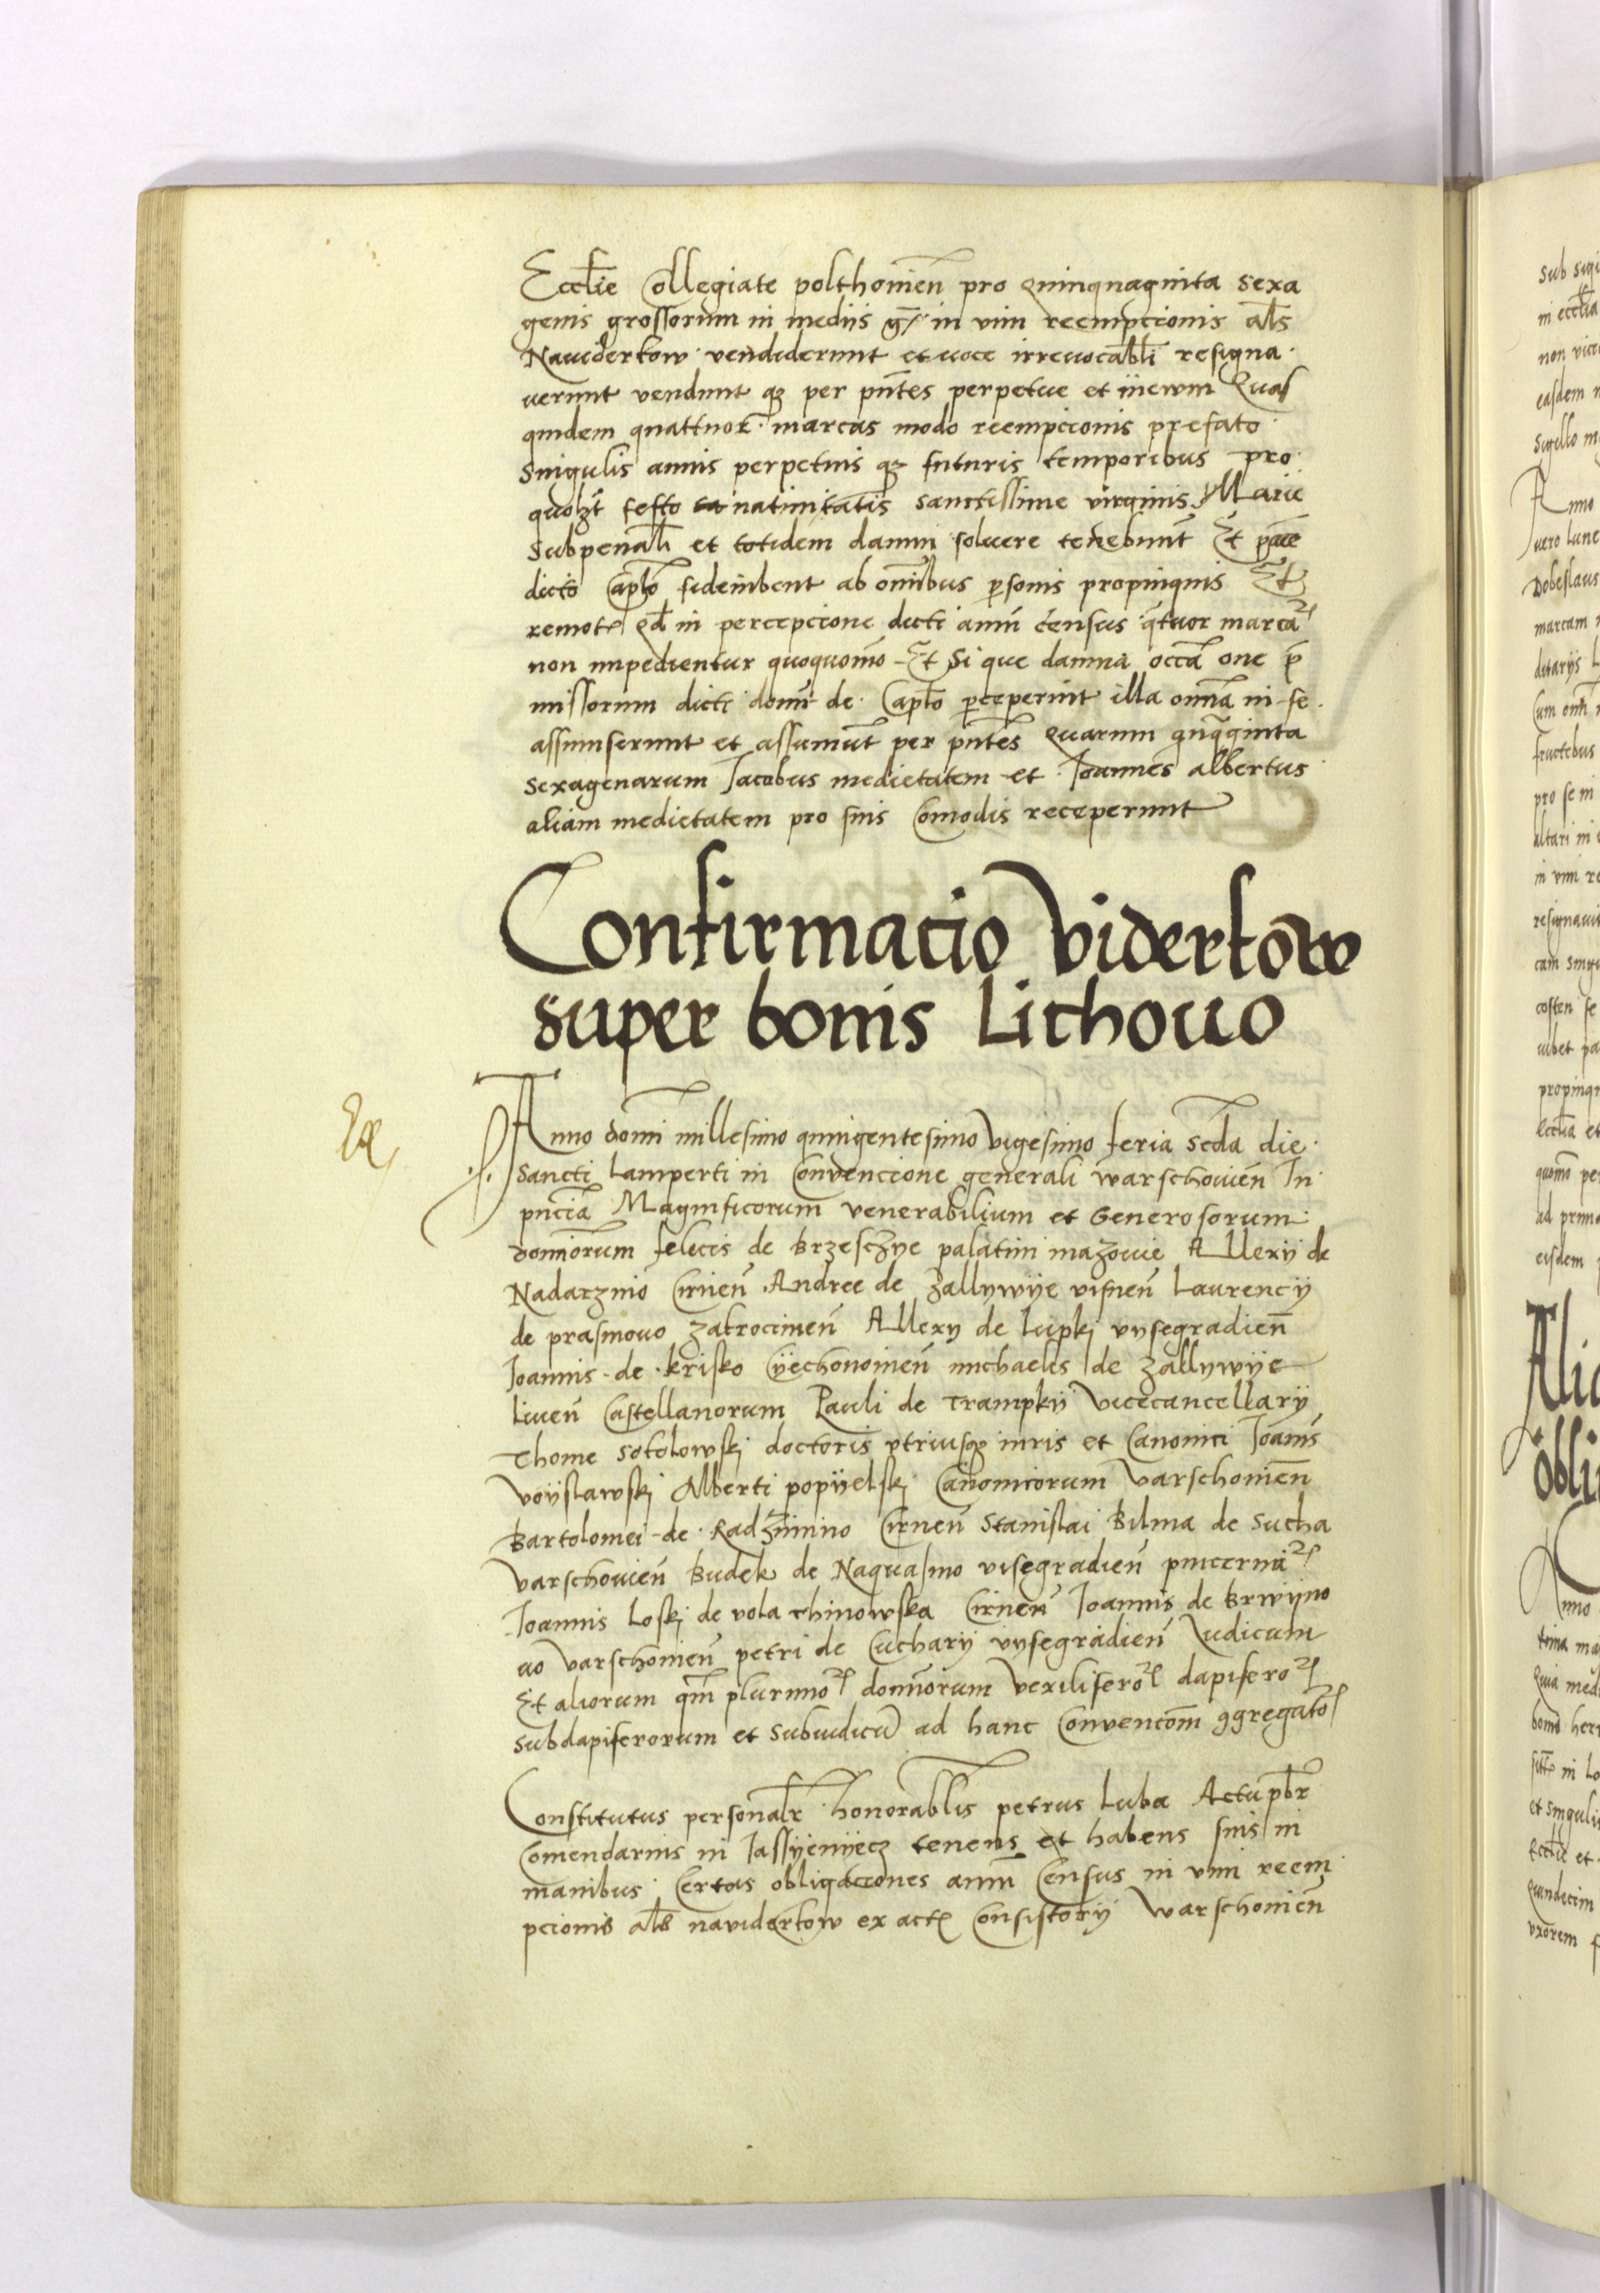 Eccl̄ie Collegiate polthovien̄ pro Quinquaginta sexa
genis grossorum in mediis g̅ in vim reempcionis al̄s
Naviderkow vendiderunt et voce irrevocabl̄i resigna
verunt vendunt qȝ per pn̄tes perpetue et in ewm Quas
quidem quattuor marcas modo reempcionis prefato
Singulis annis perpetuis qȝ futuris temporibus pro
quolȝt festo nativitatis sanctissime virginis Marie
Subpena et totidem damni solvere tenebunt̄ Et
dicto Capl̄o fideiubent ab om̄ibus psonis propinquis Et
remot Qd̄ in percepcione dicti annui census qtuor marca
non impedientur quoquomo Et Si que damna occa one p̄
missorum dicti domi de Capl̄o perceperint illa omnia in se
assumserunt et assumūt per pn̄tes Quarum quqginta
Sexagenarum Jacobus medietatem et Joannes albertus
aliam medietatem pro suis Comodis receperunt
Confirmacio viderkow
super bonis Lithovo
Anno domi millesimo quingentesimo vigesimo feria scd̄a die
Sancti Lamperti in Convencione generali warschovien̄ In
pn̄cia Magnificorum venerabilium et Generosorum
dominorum felicis de Brzesczye palatini mazovie Allexii de
Nadarzino Cirnen̄ Andree de Zallywye visnen̄ Laurency
de prasmovo Zakrocimen̄ Allexy de Lupki vysegradien̄
Joannis de Krisko Cyechonoinen̄ michaelis de Zallywye
Liven̄ Castellanorum Pauli de Trampky vicecancellary
Thome Sokolowski doctoris vtriusqȝ iuris et Canonici Joannis
Voyslawski Alberti popyelski Canonicorum varschovien̄
Bartolomei de Radzinino Cirnen̄ Stanislai Bilma de Sucha
varschovien̄ Budek de Naquasino visegradien̄ pincerna
Joannis Loski de vola chinowska Cirnen̄ Joannis de Brwyno
vo varschovien̄ petri de Cuchary vysegradien̄ Judicum
Et aliorum qm̄ plurimo dominorum vexilifero dapifero
Subdapiferorum et Subiudicū ad hanc Convencom̄ 9gregato
Constitutus personal̄r honorabl̄is petrus Luba Actu pbr̄
Comendarius in Jassyenyecz tenens et habens suis in
manibus Certas obligacciones annui Census in vim reem
pcionis al̄s naviderkow ex act Consistory warschovien̄